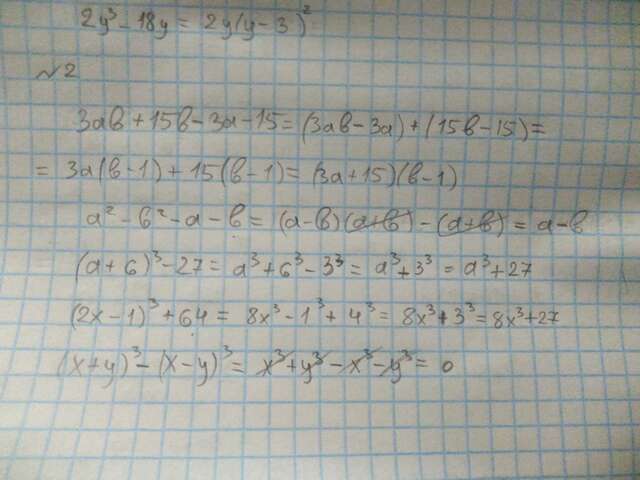 2y³ - 18y = 2y(y - 3)²
№2
3ab + 15b - 3a - 15 = (3ab - 3a) + (15b - 15) =
= 3a(b - 1) + 15(b - 1) = (3a + 15)(b - 1)
a² - b² - a - b = (a - b)(a + b) - (a + b) = a - b
(a + 6)³ - 27 = a³ + 6³ - 3³ = a³ + 3³ = a³ + 27
(2x - 1)³ + 64 = 8x³ - 1³ + 4³ = 8x³ + 3³ = 8x³ + 27
(x + y)³ - (x - y)³ = x³ + y³ - x³ - y³ = 0